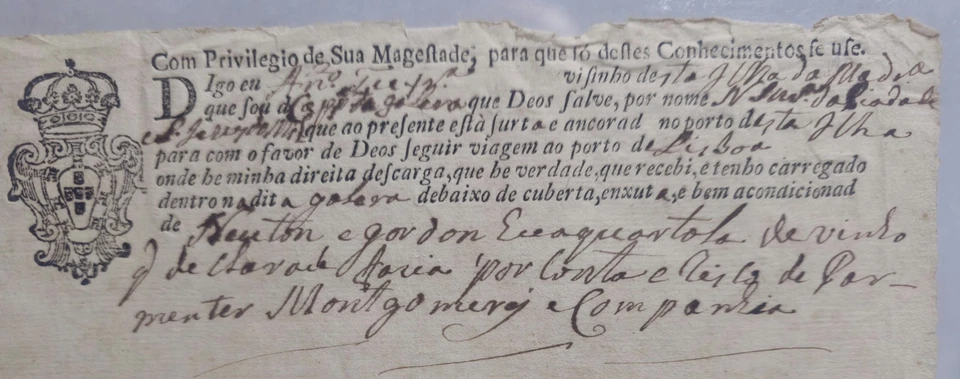 Com Privilegio de Sua Magestade, para que só destes Conhecimentos se use.
Digo eu visinho desta Ilha da Madra
que sou Capp. da galera que Deos salve, por nome N. Snra. da Piadade
que ao presente està surta e ancorad no porto desta Ilha
para com o favor de Deos seguir viagem ao porto de Lisboa
onde he minha direita descarga, que he verdade, que recebi, e tenho carregado
dentro na dita galera debaixo de cuberta, enxuta, e bem acondicionad
de Newton e gordon Eua quartola de vinho
q de clarou de Maria por Conta e Risco de Par-
menter Montgomerej e Companhia